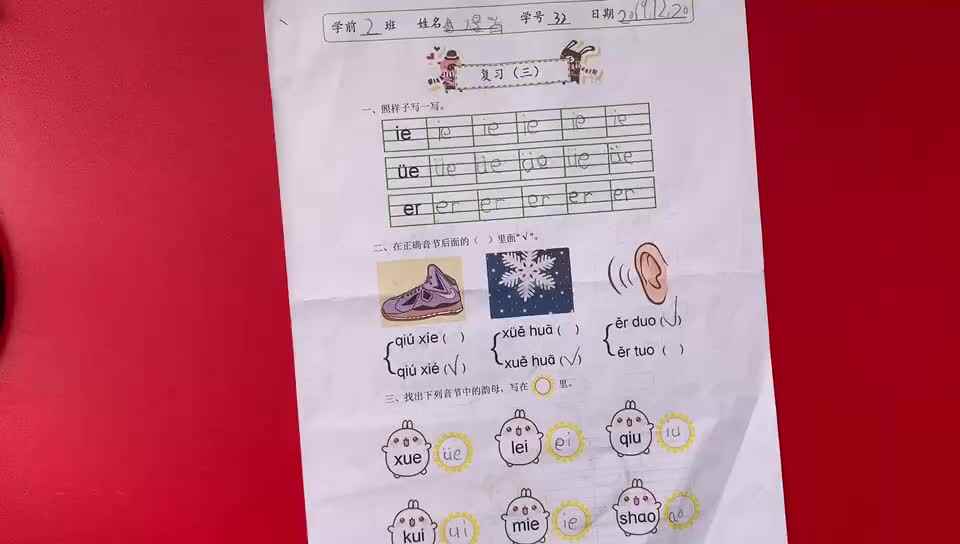 学前 2 班 姓名 学号 32 日期 2019.12.20
复习（三）
一、照样子写一写。
ie ie ie ie ie ie
üe üe üe üe üe üe
er er er er er er
二、在正确音节后面的（ ）里画“√”。
qiú xie ( ) xüě huā ( ) ěr duo (√)
qiú xié (√) xuě huā (√) ěr tuo ( )
三、找出下列音节中的韵母，写在 里。
xue üe lei ei qiu iu
kui ui mie ie shao ao